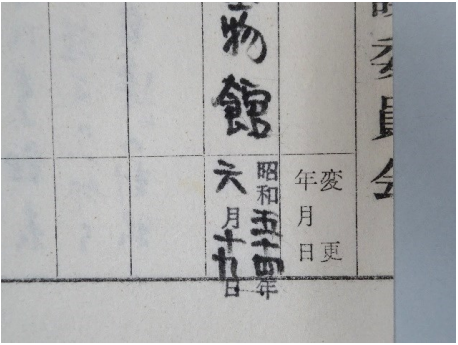 委員会
変更
年月日
昭和五十四年
六月十九日
物館